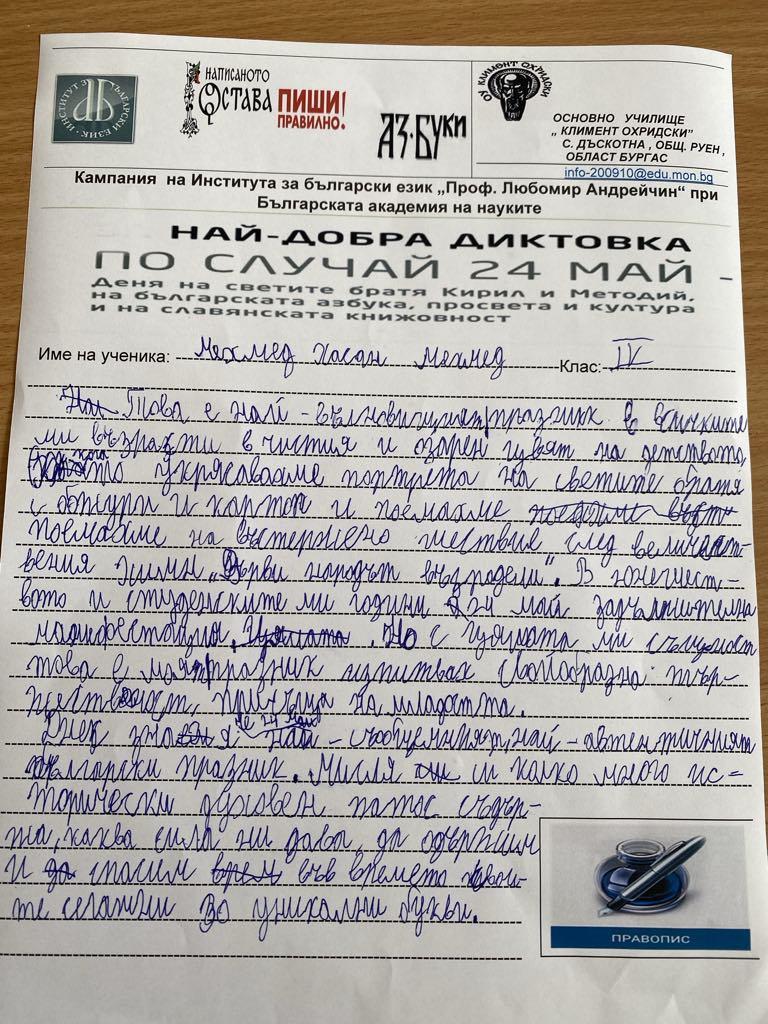 ИНСТИТУТ ЗА БЪЛГАРСКИ ЕЗИК
НАПИСАНОТО
ОСТАВА ПИШИ!
ПРАВИЛНО.
АЗ·БУКИ
ОУ КЛИМЕНТ ОХРИДСКИ
ОСНОВНО УЧИЛИЩЕ
„ КЛИМЕНТ ОХРИДСКИ”
С. ДЪСКОТНА , ОБЩ. РУЕН ,
ОБЛАСТ БУРГАС
info-200910@edu.mon.bg
Кампания на Института за български език „Проф. Любомир Андрейчин“ при
Българската академия на науките
НАЙ-ДОБРА ДИКТОВКА
ПО СЛУЧАЙ 24 МАЙ –
Деня на светите братя Кирил и Методий,
на българската азбука, просвета и култура
и на славянската книжовност
Име на ученика: Мехмед Хасан Мехмед Клас: IV
Това е най - вълновищият празник в всичките
ми възрасти в чистия и озарен цвят на детството
кога то украсяваме портрета на светите братя
с божури и и поемахме
поемахме на въстержено шествие след величаест-
вения химн „Върви народът възродели“. В юношест-
вото и студенските ми години 24 май задължителна
манифестация. Но с цялата ми същност
това е моят празник изпитвах своеобразна тър-
жественост, на младостта.
Днек зная че 24 май най - съобщемният, най - автентичният
български празник. Мисля си колко много ис=
торически духовен патос съдър-
жа, каква сила ни дава, да одържим
и спасим във времето
те сегашни 30 уникални букви.
ПРАВОПИС